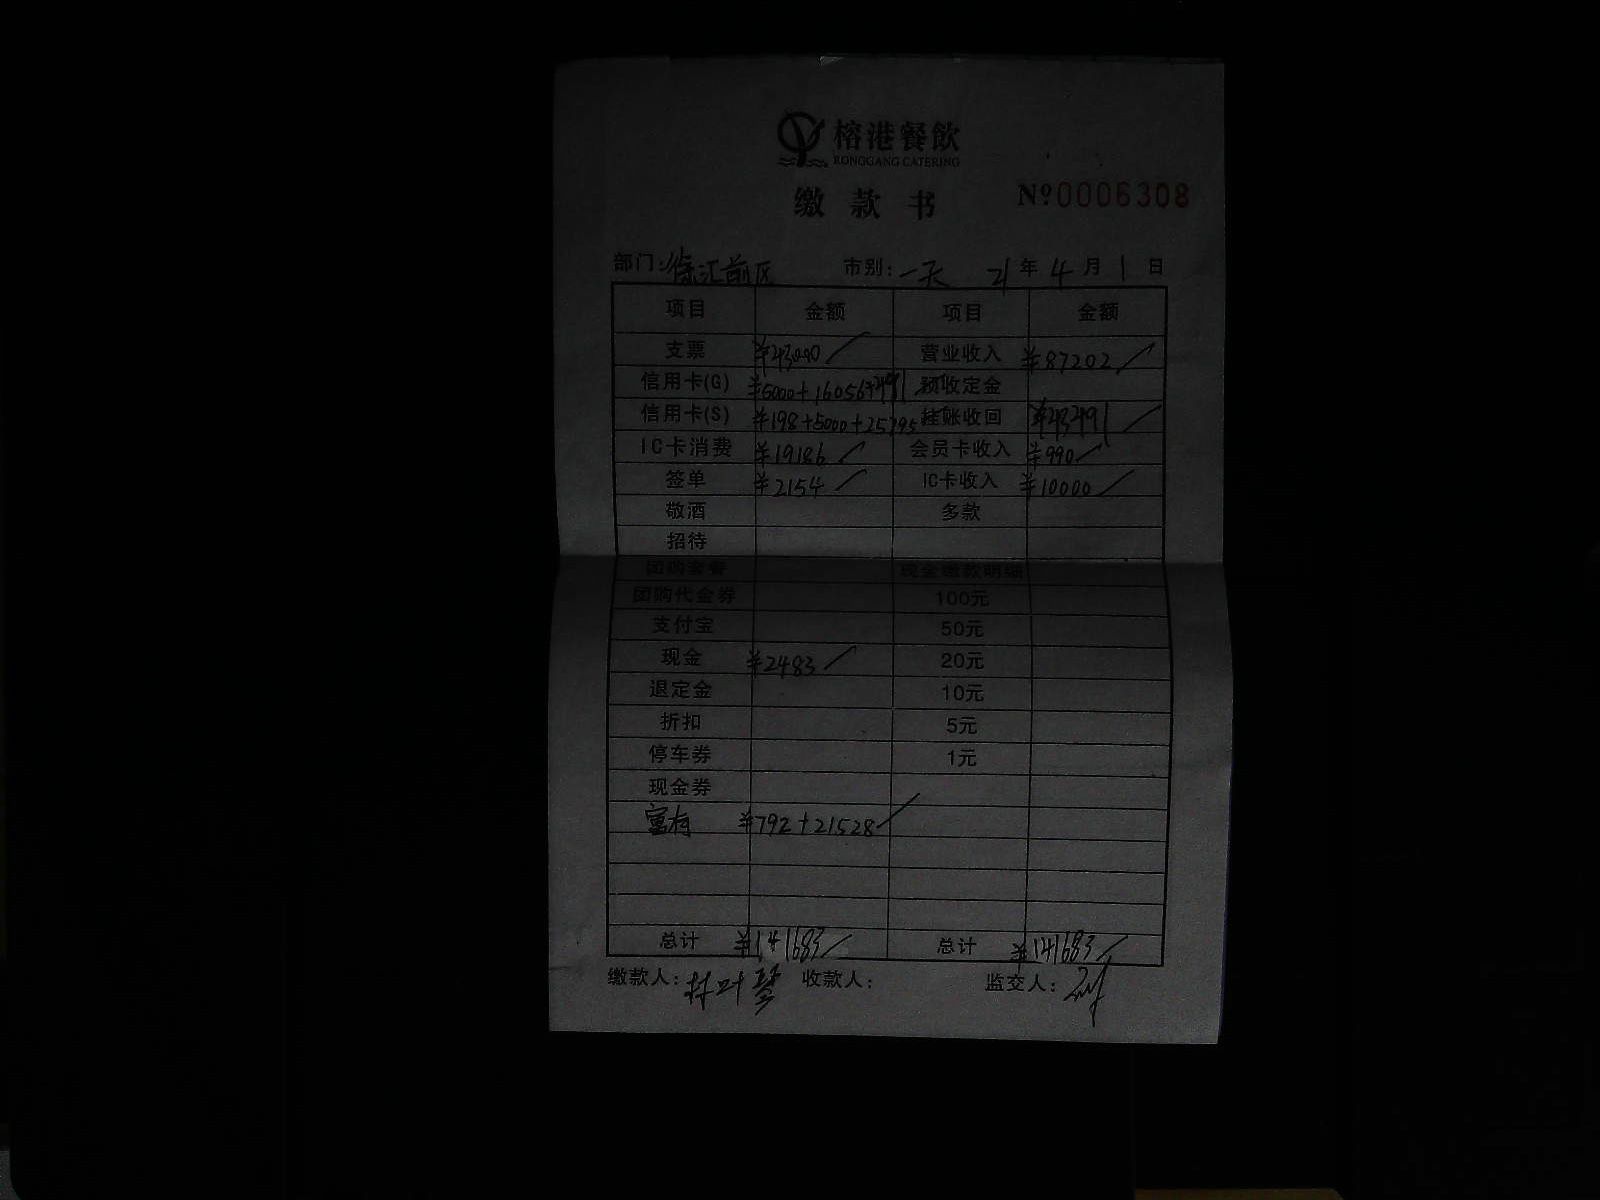 榕港餐飲
RONGGANG CATERING
缴款书 №0006308
部门:徐汇前区 市别:一天 21年4月1日
项目 金额 项目 金额
支票 ¥43000 营业收入 ¥87202
信用卡(G) ¥5000+16056+491 预收定金
信用卡(S) ¥198+5000+25795 挂账收回 ¥43491
IC卡消费 ¥19186 会员卡收入 ¥990
签单 ¥2154 IC卡收入 ¥10000
敬酒 多款
招待
团购套餐 现金缴款明细
团购代金券 100元
支付宝 50元
现金 ¥2483 20元
退定金 10元
折扣 5元
停车券 1元
现金券
¥792+21528
总计 ¥141683 总计 ¥141683
缴款人:林叶琴 收款人: 监交人: